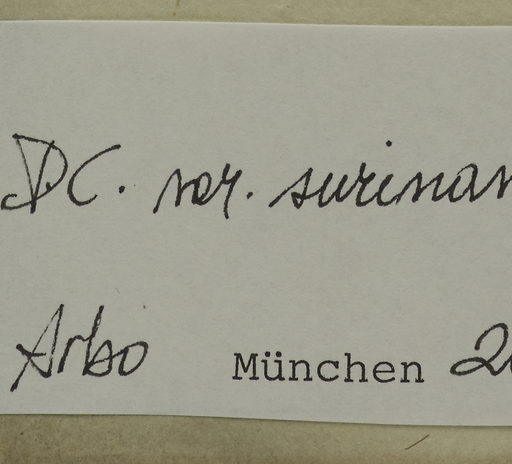 DC. var. surinam
Arbo München 20